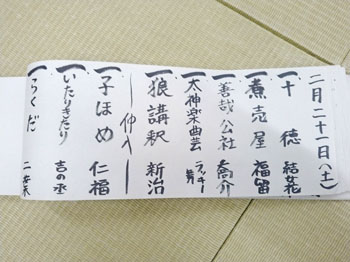 二月二十一日(土)
一 十徳 結花
一 煮売屋 福留
一 善哉公社 喬介
一 太神楽曲芸 ラッキー舞
一 狼講釈 新治
― 仲入 ―
一 子ほめ 仁福
一 いたりきたり 吉の丞
一 らくだ